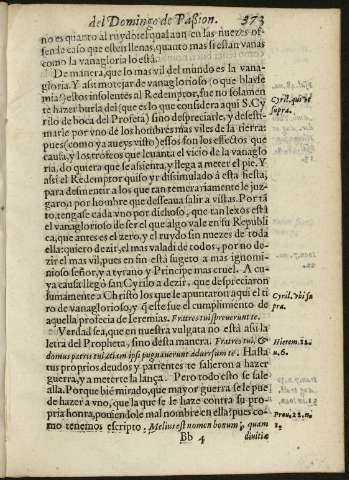 del Domingo de Paſsion. 373
no es quanto al ruydo: el qual aun en las nuezes of-
fende caſo que eſten llenas, quanto mas ſi eſtan vanas
como la vanagloria lo eſtà.
De manera, que lo mas vil del mundo es la vana-
gloria. Y aſi motejar de vanaglorioſo (o que blasfe
mia!) eſtos inſolentes al Redemptor, fue no ſolamen
te hazer burla del (que es lo que conſidera aqui S. Cy
rilo de boca del Profeta) ſino deſpreciarle, y deſeſti-
marle por vno de los hombres mas viles de la tierra:
pues (como ya aueys viſto) eſſos ſon los effectos que
cauſa, y los trofeos que leuanta el vicio de la vanaglo
ria, do quiera que ſe aſsienta, y llega a meter el pie. Y
aſsi el Redemptor quiſo yr diſsimulado à eſta fieſta,
para deſmentir a los que tan temerariamente le juz-
garon, por hombre que deſſeaua ſalir a viſtas. Por tã
to, tengaſe cada vno por dichoſo, que tan lexos eſtà
el vanaglorioſo de ſer el que algo vale en ſu Republi
ca, que antes es el zero, y el ruydo ſin nuezes de toda
ella: quiero dezir, el mas valadi de todos, por no de-
zir el mas vil, pues en fin eſtà ſugeto a mas ignomi-
nioſo ſeñor, y a tyrano y Principe mas cruel. A cu-
ya cauſa llegò ſan Cyrilo a dezir, que deſpreciaron
ſumamente a Chriſto los que le apuntaron aqui el te
ro de vanaglorioſo, y q̃ eſte fue el cumplimiento de
aquella profecia de Ieremias. Fratres tui ſpreuerunt te.
Verdad ſea, que en nueſtra vulgata no eſtà aſsi la
letra del Propheta, ſino deſta manera. Fratres tui, &
domus patris tui, etiam ipſi pugnauerunt aduerſum te. Haſta
tus proprios deudos y parientes te ſalieron a hazer
guerra, y a meterte la lança. Pero todo eſto ſe ſale
alla. Porque biẽ mirado, que mayor guerra ſe le pue
de hazer a vno, que la que ſe le haze contra ſu pro-
pria honra, poniendole mal nombre en ella? pues co-
mo tenemos eſcripto. Melius eſt nomen bonum, quam
Bb 4 diuitiæ
Cyril. qui vt
ſupra.
Cyril. vbi ſu
pra.
Hierem. 12.
n. 6.
Prou. 22. n.
1.